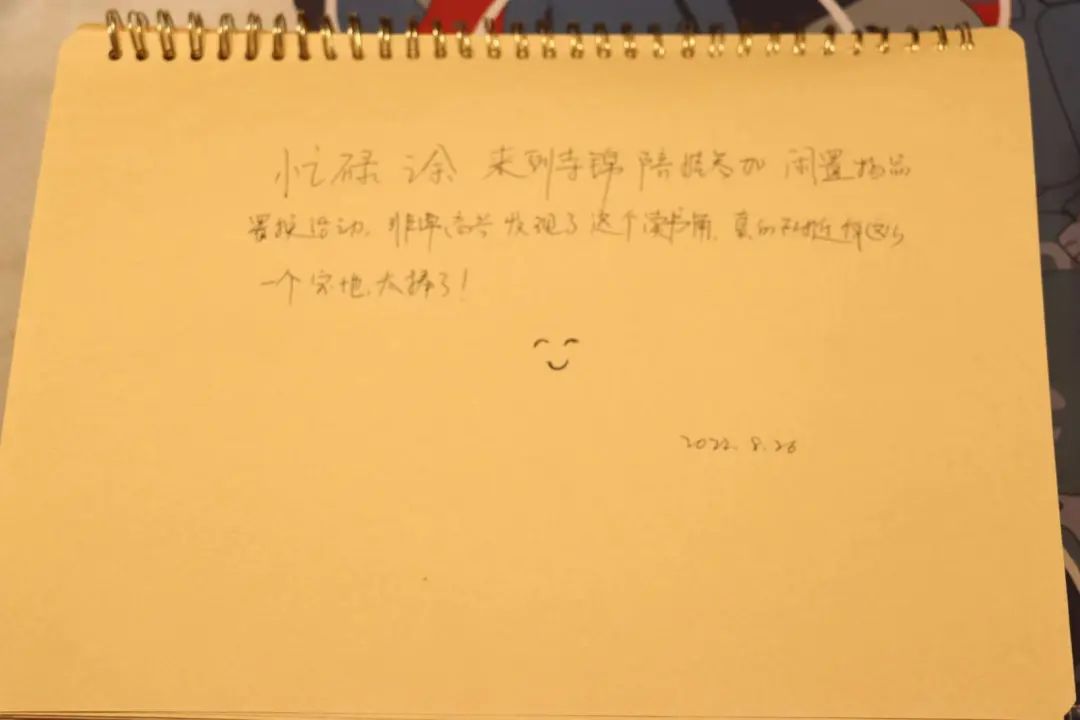 忙碌之余 来到寺锦 陪娃参加 闲置物品
置换活动,非常高兴 发现了这个读书角,真的
一个宝地,太棒了!
2022.8.26